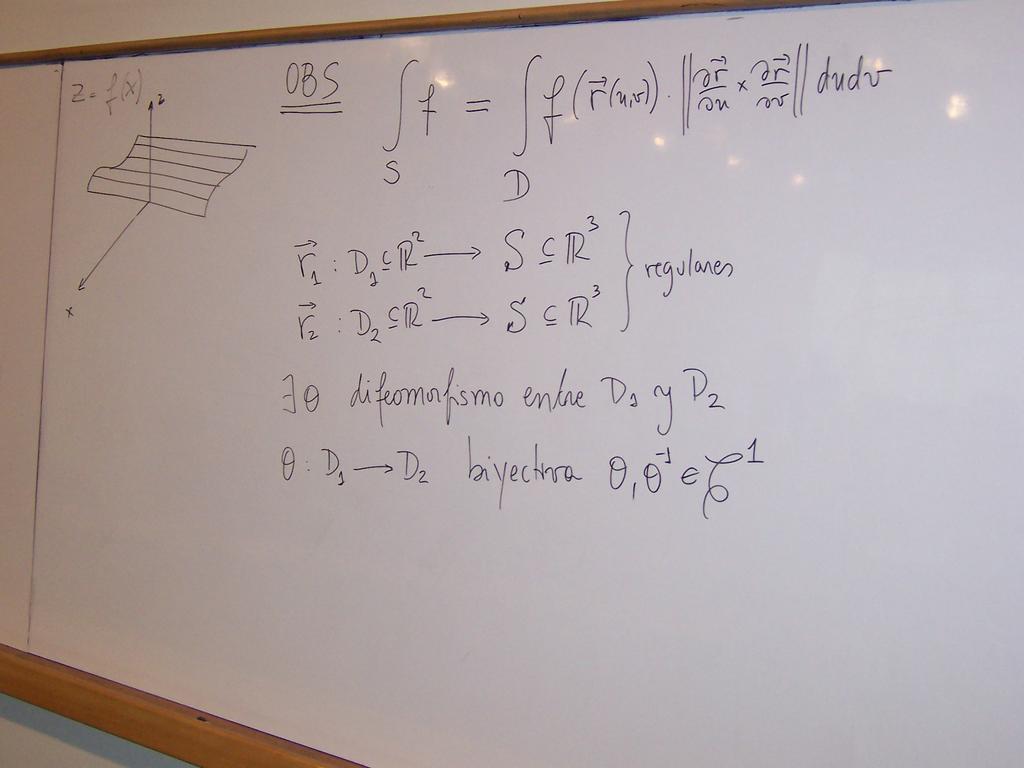 Z = f(x)
z
x
OBS ∫_S f = ∫_D f(r⃗(u,v)) · ‖∂r⃗/∂u × ∂r⃗/∂v‖ dudv
r⃗₁ : D₁ ⊆ ℝ² ⟶ S ⊆ ℝ³
r⃗₂ : D₂ ⊆ ℝ² ⟶ S ⊆ ℝ³
} regulares
∃ θ difeomorfismo entre D₁ y D₂
θ : D₁ ⟶ D₂ biyectiva θ, θ⁻¹ ∈ 𝒞¹